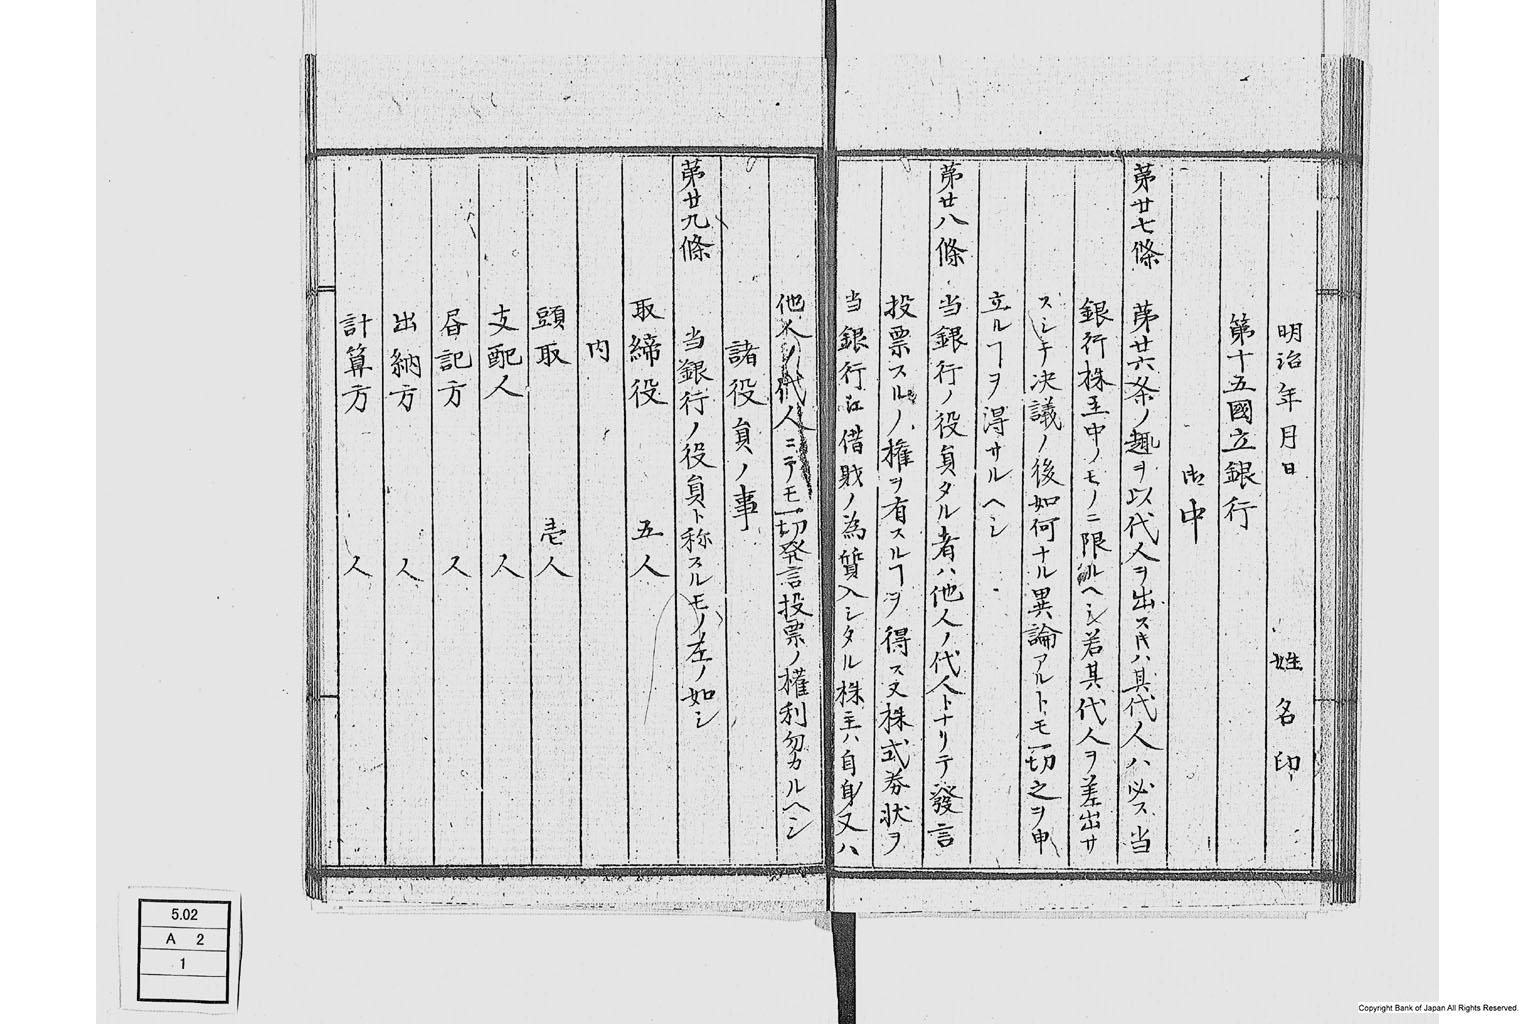 明治年月日 姓名印
第十五國立銀行
御中
第廿七條 第廿六条ノ趣ヲ以代人ヲ出スキハ其代人ハ必ス当
銀行株主中ノモノニ限ルヘシ若其代人ヲ差出サ
スシテ決議ノ後如何ナル異論アルトモ一切之ヲ申
立ルヿヲ得サルヘシ
第廿八條 当銀行ノ役員タル者ハ他人ノ代人トナリテ發言
投票スルノ権ヲ有スルヿヲ得ス又株式券状ヲ
当銀行江借財ノ為質入シタル株主ハ自身又ハ
他人ノ代人ニテモ一切発言投票ノ權利勿カルヘシ
諸役員ノ事
第廿九條 当銀行ノ役員ト称スルモノ左ノ如シ
取締役 五人
内
頭取 壱人
支配人 人
昏記方 人
出納方 人
計算方 人
5.02
A 2
1
Copyright Bank of Japan All Rights Reserved.